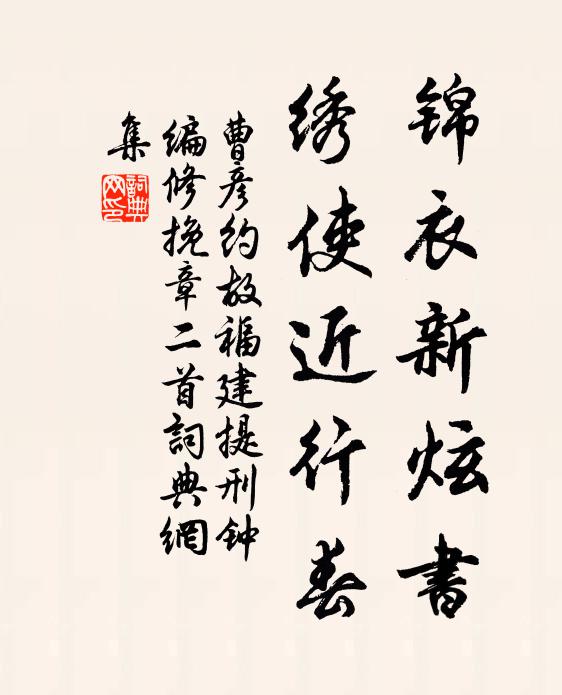 锦衣新炫書
绣使近行春
曹彦约故福建提刑钟
编修挽章二首詞典網
集
詞典
网印